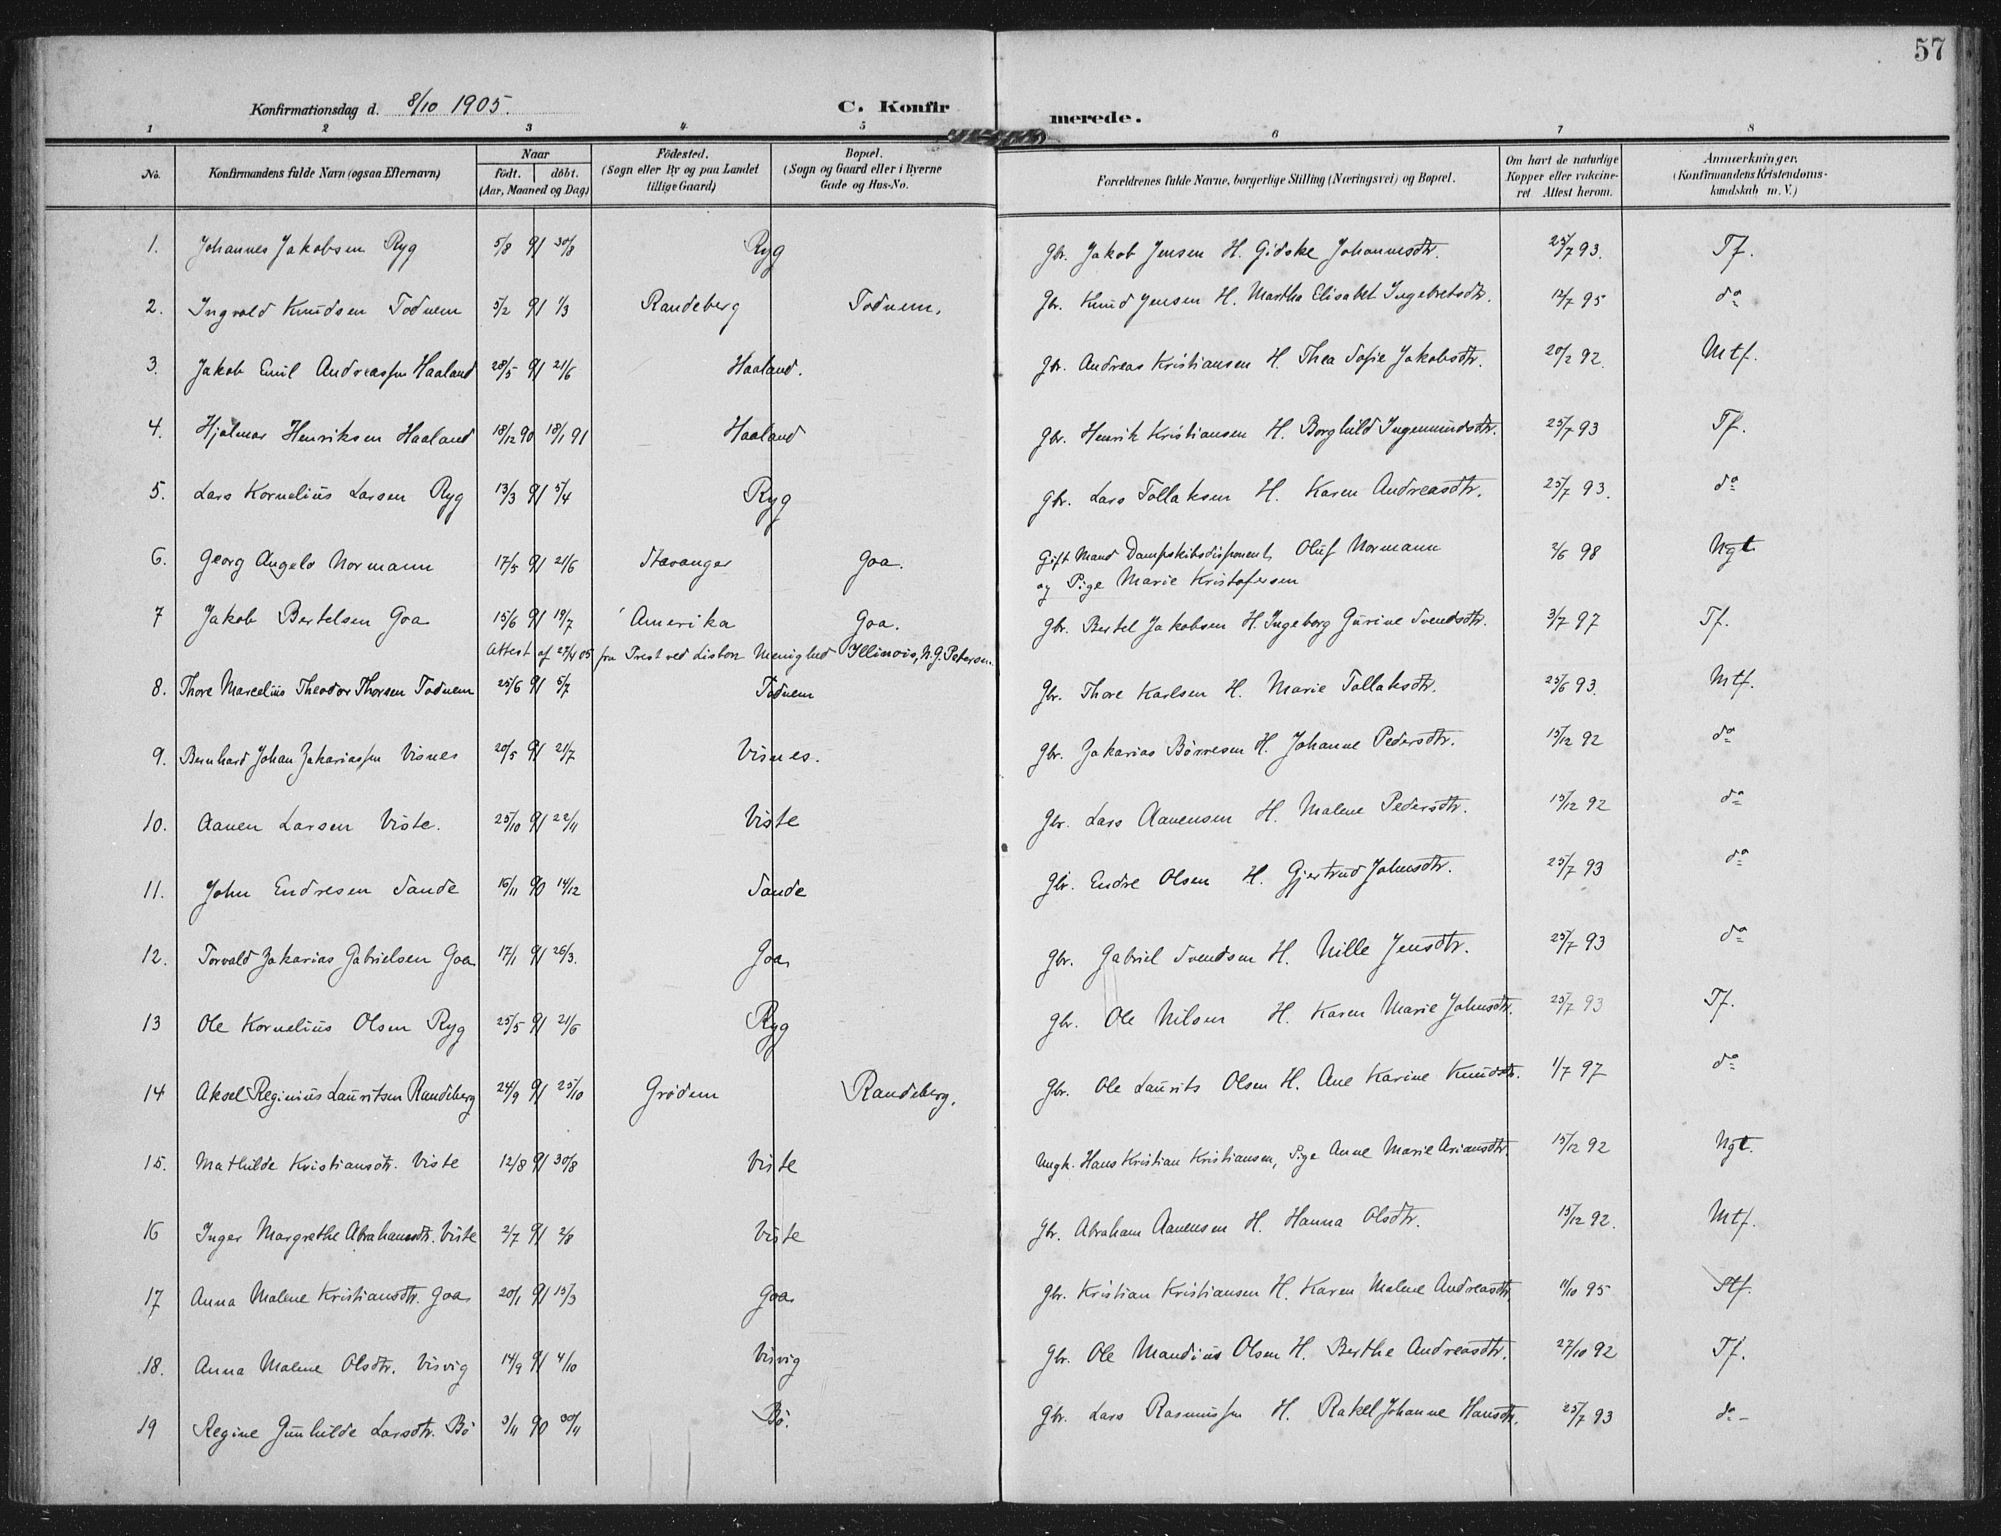 57
Konfirmationsdag d. 8/10 1905.
C. Konfirmerede.
1 2 3 4 5 6 7 8
No. Konfirmandens fulde Navn (ogsaa Efternavn) Naar födt. döbt. (Aar, Maaned og Dag) Födested. (Sogn eller By og paa Landet tillige Gaard) Bopæl. (Sogn og Gaard eller i Byerne Gade og Hus-No. Forældrenes fulde Navne, borgerlige Stilling (Næringsvei) og Bopæl. Om havt de naturlige Kopper eller vakcineret Attest herom. Anmærkninger. (Konfirmandens Kristendomskundskab m. V.)
1. Johannes Jakobsen Ryg 5/8 91 30/8 Ryg Gbr. Jakob Jensen H. Gidske Johannesdtr. 25/7 93. Tf.
2. Ingvald Knudsen Todnem 5/2 91 1/3 Randeberg Todnem. Gbr. Knud Jensen H. Martha Elisabet Ingebretsdtr. 12/7 95 do
3. Jakob Emil Andreassen Haaland 28/5 91 21/6 Haaland. Gbr. Andreas Kristiansen H. Thea Sofie Jakobsdtr. 20/2 92. Mtf.
4. Hjalmar Henriksen Haaland 18/12 90 18/1 91 Haaland Gbr. Henrik Kristiansen H. Borghild Ingemundsdtr. 25/7 93 Tf.
5. Lars Kornelius Larsen Ryg 13/3 91 5/4 Ryg Gbr. Lars Tollaksen H. Karen Andreasdtr. 25/7 93. do
6. Georg Angelo Normann 17/5 91 21/6 Stavanger Goa. Gift Mand Dampskibsdisponent Oluf Normann 2/6 98 Ngt.
og Pige Marie Kristofersen
7 Jakob Bertelsen Goa 15/6 91 19/7 Amerika Goa. Gbr. Bertel Jakobsen H. Ingeborg Gurine Svendsdtr. 3/7 97 Tf.
Attest af 27/4 05 fra Prest ved Lisbon Menighed Illinois, N. J. Petersen.
8. Thore Marcelius Theodor Thorsen Todnem 25/6 91 5/7 Todnem Gbr. Thore Karlsen H. Marie Tollaksdtr. 25/6 93. Mtf.
9. Bernhard Johan Zakariassen Visnes 20/5 91 21/7 Visnes. Gbr. Zakarias Börresen H. Johanne Pedersdtr. 15/12 92 do
10. Aanen Larsen Viste. 25/10 91 22/11 Viste Gbr. Lars Aanensen H. Malene Pedersdtr. 15/12 92 do
11. John Endresen Sande 16/11 90 14/12 Sande Gbr. Endre Olsen H. Gjertrud Johnsdtr. 25/7 93 do
12. Torvald Zakarias Gabrielsen Goa 17/1 91 26/3. Goa Gbr. Gabriel Svendsen H. Nille Jensdtr. 25/7 93 do
13 Ole Kornelius Olsen Ryg 25/5 91 21/6 Ryg Gbr. Ole Nilsen H. Karen Marie Johnsdtr. 25/7 93 Tf.
14 Aksel Reginius Lauritsen Randeberg 24/9 91 25/10 Grödem Randeberg. Gbr. Ole Laurits Olsen H. Ane Karine Knudsdtr. 1/7 97 do
15. Mathilde Kristiansdtr. Viste 12/8 91 30/8 Viste Ungk. Hans Kristian Kristiansen, Pige Anne Marie Ariansdtr. 15/12 92 Ngt.
16 Inger Margrethe Abrahamsdtr. Viste 2/7 91 2/8 Viste Gbr. Abraham Aanensen H. Hanna Olsdtr. 15/12 92. Mtf.
17 Anna Malene Kristiansdtr. Goa 20/1 91 15/3 Goa Gbr. Kristian Kristiansen H. Karen Malene Andreasdtr. 11/10 95 Stf.
18. Anna Malene Olsdtr. Visvig 14/9 91 4/10 Visvig Gbr. Ole Mandius Olsen H. Berthe Andreasdtr. 27/10 92 Tf.
19 Regine Gunhilde Larsdtr. Bö 3/11 90 30/11 Bö. Gbr. Lars Rasmussen H. Rakel Johanne Hansdtr. 25/7 93 do